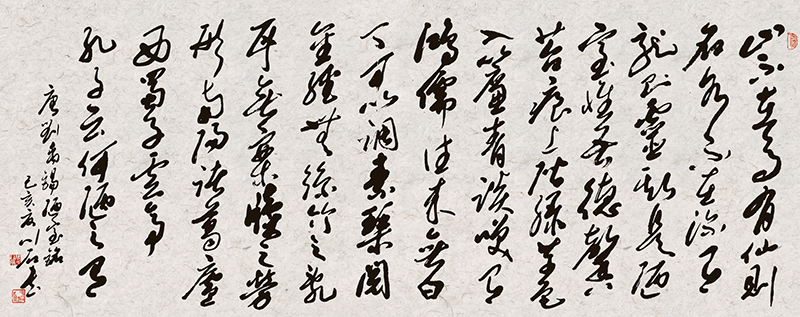 山不在高有仙則
名水不在深有
龍則靈斯是陋
室惟吾德馨
苔痕上階綠草色
入簾青談笑有
鴻儒往來無白
丁可以調素琴閱
金經無絲竹之亂
耳無案牘之勞
形南陽諸葛廬
西蜀子雲亭
孔子云何陋之有
唐劉禹錫陋室銘
己亥夏川石書